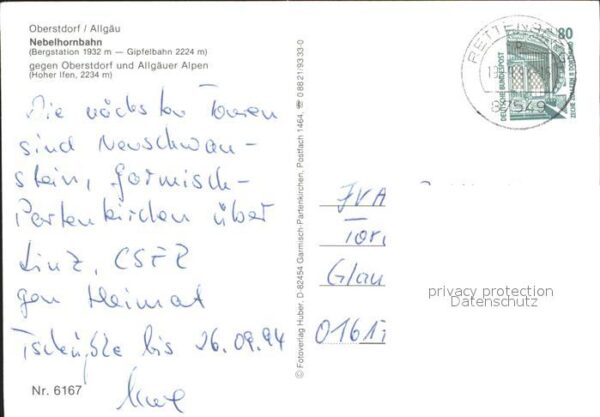 Oberstdorf / Allgäu
Nebelhornbahn
(Bergstation 1932 m — Gipfelbahn 2224 m)
gegen Oberstdorf und Allgäuer Alpen
(Hoher Ifen, 2234 m)
Die nächsten Touren
sind Neuschwan-
stein, Garmisch-
Partenkirchen über
Linz, ČSFR
gen Heimat
Tschüßle bis 26.09.94
Nr. 6167
© Fotoverlag Huber, D-82454 Garmisch-Partenkirchen, Postfach 1464, ☎ 08821-9330
80
DEUTSCHE BUNDESPOST
ZECHE ZOLLERN II DORTMUND
87549
JVA
Tor,
Glau
01617
privacy protection
Datenschutz